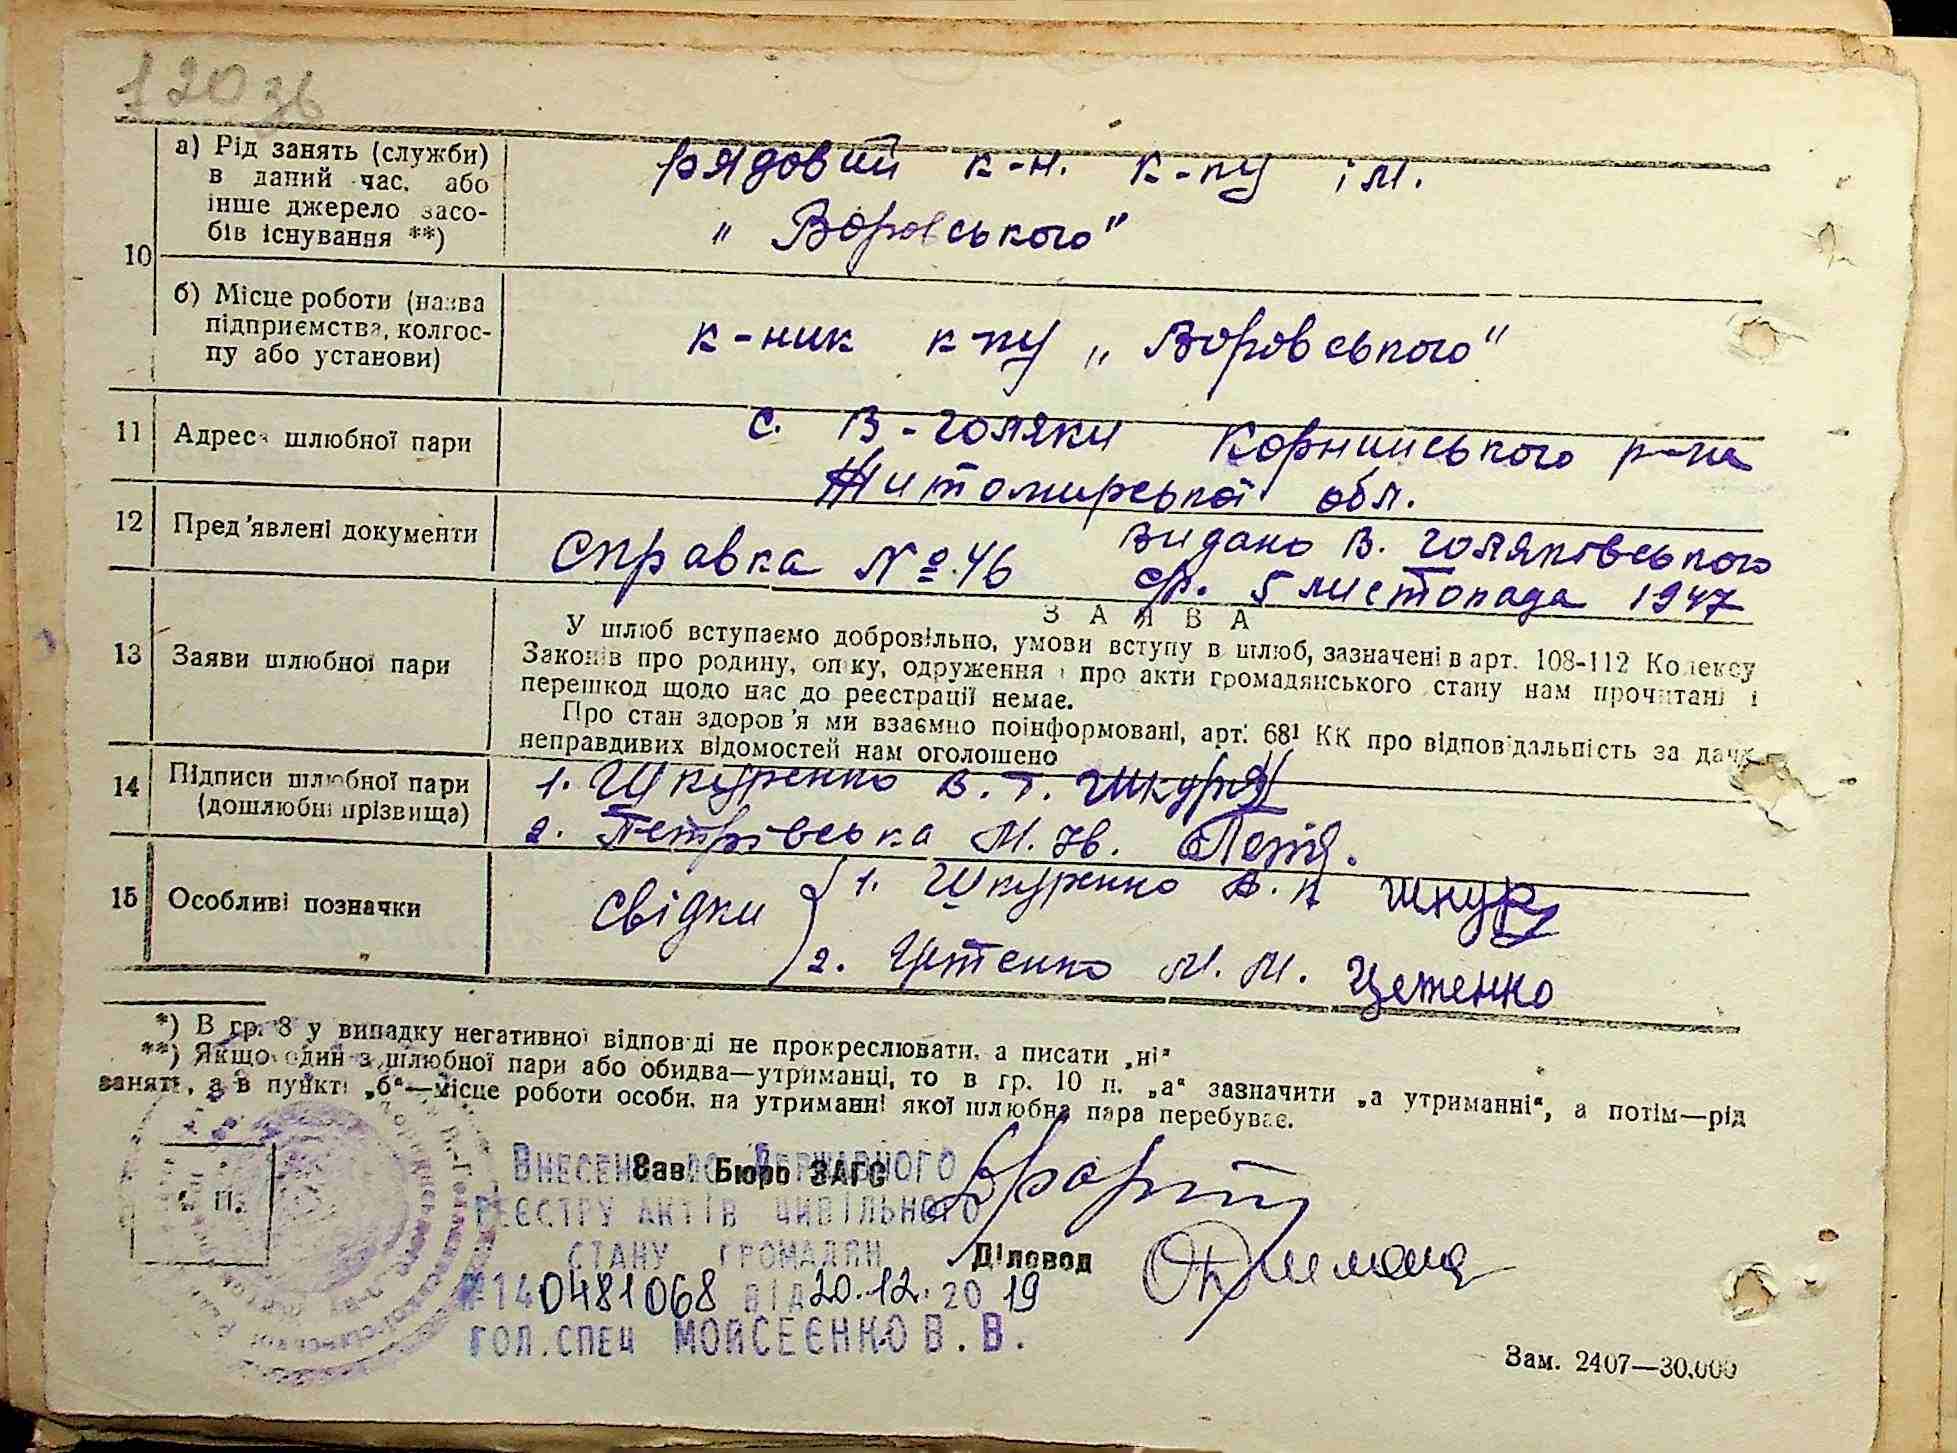 120 зв
10
а) Рід занять (служби)
в даний час, або
інше джерело засо-
бів існування **)
рядовий к-н. к-пу ім.
„ Воровського"
б) Місце роботи (назва
підприємства, колгос-
пу або установи)
к-ник к-пу „ Воровського"
11 Адреса шлюбної пари
с. В-Голяки Корнинського р-на
Житомирської обл.
12 Пред'явлені документи
Справка № 46 видано В. Голяківського
с/р. 5 листопада 1947
13 Заяви шлюбної пари
ЗАЯВА
У шлюб вступаємо добровільно, умови вступу в шлюб, зазначені в арт. 108-112 Кодексу
Законів про родину, опіку, одруження і про акти громадянського стану нам прочитані і
перешкод щодо нас до реєстрації немає.
Про стан здоров'я ми взаємно поінформовані, арт. 68¹ КК про відповідальність за дачу
неправдивих відомостей нам оголошено
14 Підписи шлюбної пари
(дошлюбні прізвища)
1. Шкуренко В. Т.
2. Петрівська М. Ів.
15 Особливі позначки
Свідки
1. Шкуренко В. П
2. М. М. Цеженко
*) В гр. 8 у випадку негативної відповіді не прокреслювати, а писати „ні"
**) Якщо один з шлюбної пари або обидва—утриманці, то в гр. 10 п. „а" зазначити „а утриманні", а потім—рід
занять, а в пункті „б"—місце роботи особи, на утриманні якої шлюбна пара перебуває.
Зав. Бюро ЗАГС
Внесено до Державного
реєстру актів цивільного
стану громадян
Діловод
№ 140481068 від 20.12.2019
гол. спец Мойсеєнко В. В.
Зам. 2407—30.000